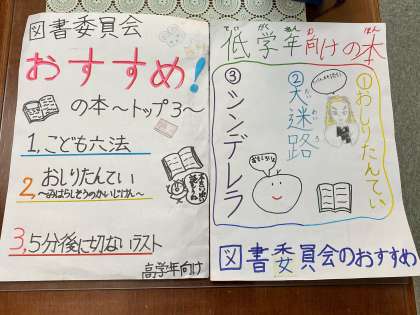 図書委員会
おすすめ!
の本～トップ3～
1,こども六法
2,おしりたんてい
～みはらしそうのかいじけん～
3,5分後に切ないラスト
高学年向け
低学年向けの本
てい がく ねん む ほん
①おしりたんてい
②大迷路
③シンデレラ
図書委員会のおすすめ